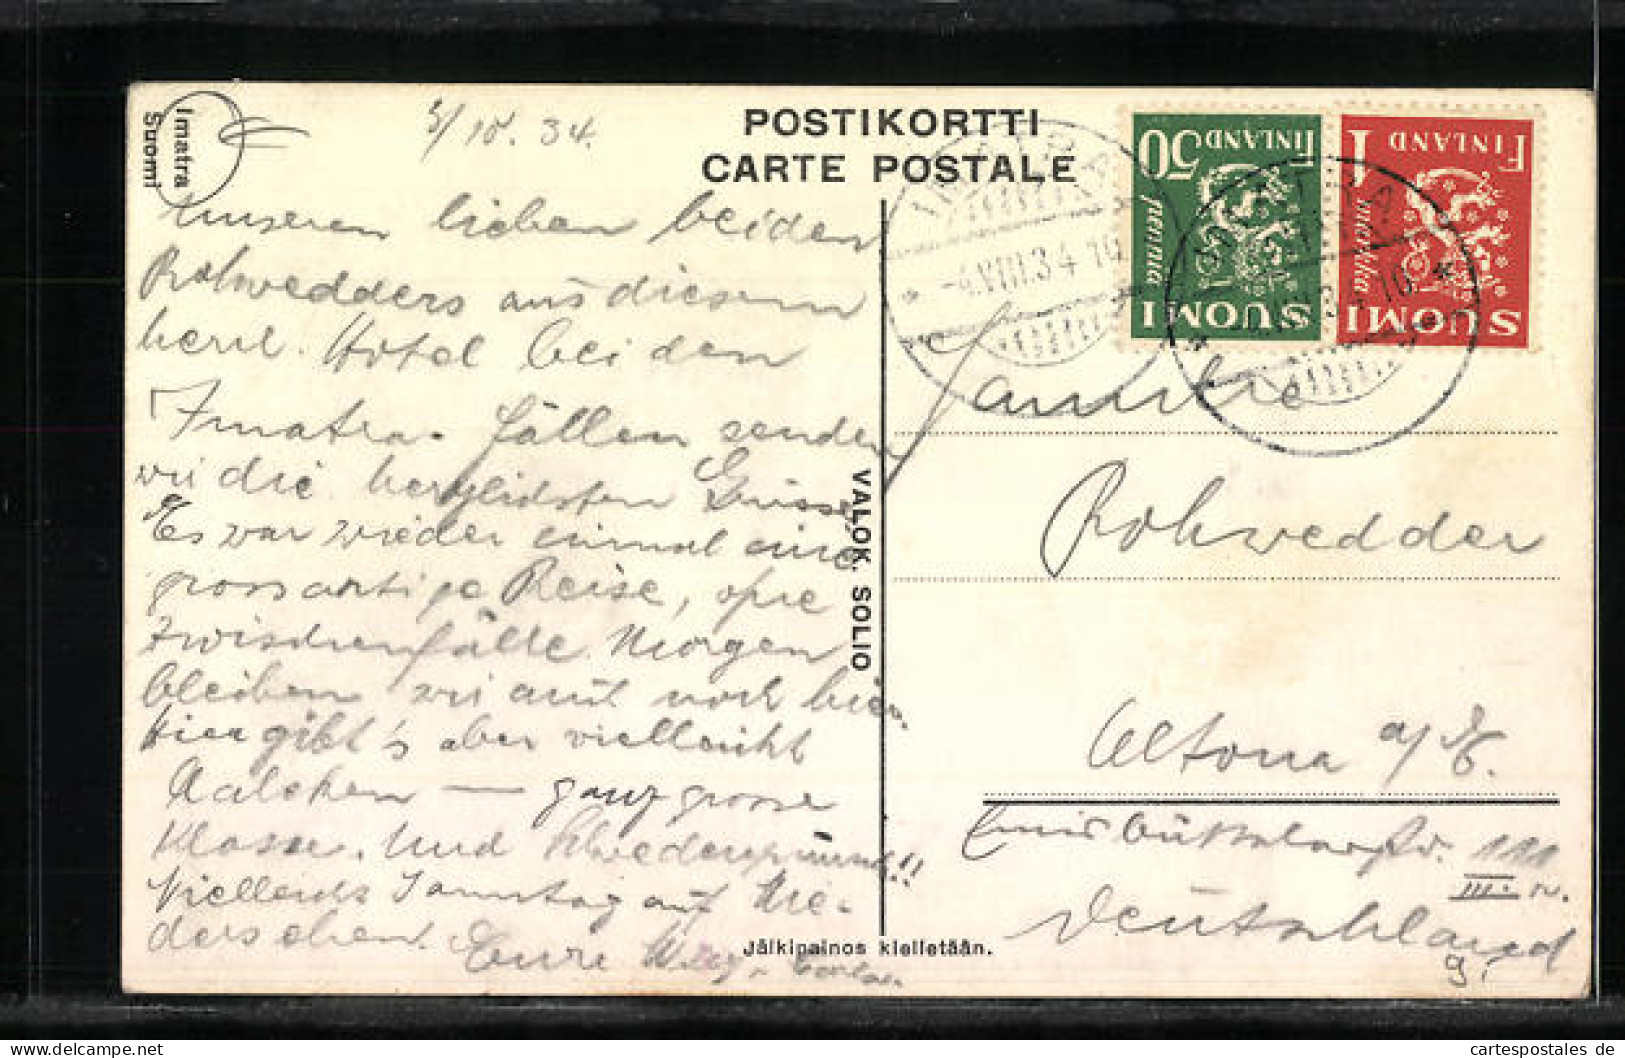 Imatra
Suomi
34.
POSTIKORTTI
CARTE POSTALE
50 FINLAND
pennia
SUOMI
1 FINLAND
markka
SUOMI
IMATRA
-4.VIII.34 10
Unseren lieben beiden
Rohwedders aus diesem
herrl. Hotel bei den
Imatra-Fällen senden
wir die herzlichsten Grüsse,
Es war wieder einmal eine
grossartige Reise, ohne
Zwischenfälle. Morgen
bleiben wir auch noch hier.
Hier gibt's aber vielleicht
Aalchen — ganz grosse
Klasse. Und Schwedenpunsch!!
Vielleicht Sonntag auf Wie-
dersehen. Eure
VALOK. SOLIO
Jälkipainos kielletään.
Familie
Rohwedder
Altona a/E.
Eimsbüttelerstr. 111
III.
Deutschland
www.delcampe.net
cartespostales de